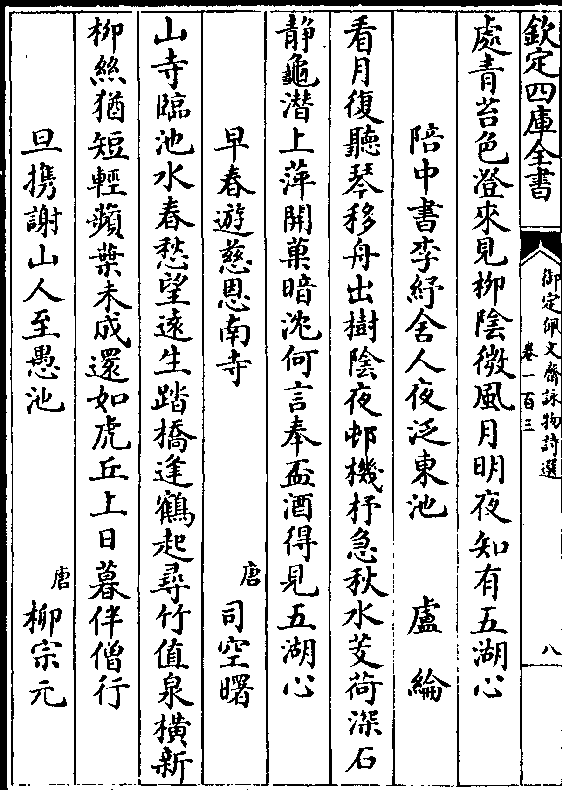 欽定四庫全書
御定佩文齋詠物詩選
卷一百三
八
處青苔色澄來見柳陰微風月明夜知有五湖心
陪中書李紓舍人夜泛東池 盧綸
看月復聽琴移舟出樹陰夜邨機杼急秋水芰荷深石
静龜潛上萍開菓暗沈何言奉盃酒得見五湖心
早春遊慈恩南寺 唐 司空曙
山寺臨池水春愁望遠生踏橋逢鶴起尋竹值泉橫新
栁絲猶短輕蘋葉未成還如虎丘上日暮伴僧行
旦擕謝山人至愚池 唐 栁宗元